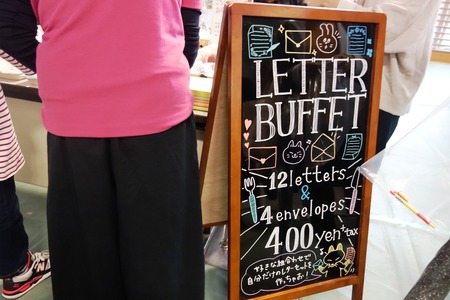 LETTER
BUFFET
12letters
&
4envelopes
400yen+tax
好きな組合わせで
自分だけのレターセットを
作っちゃお!